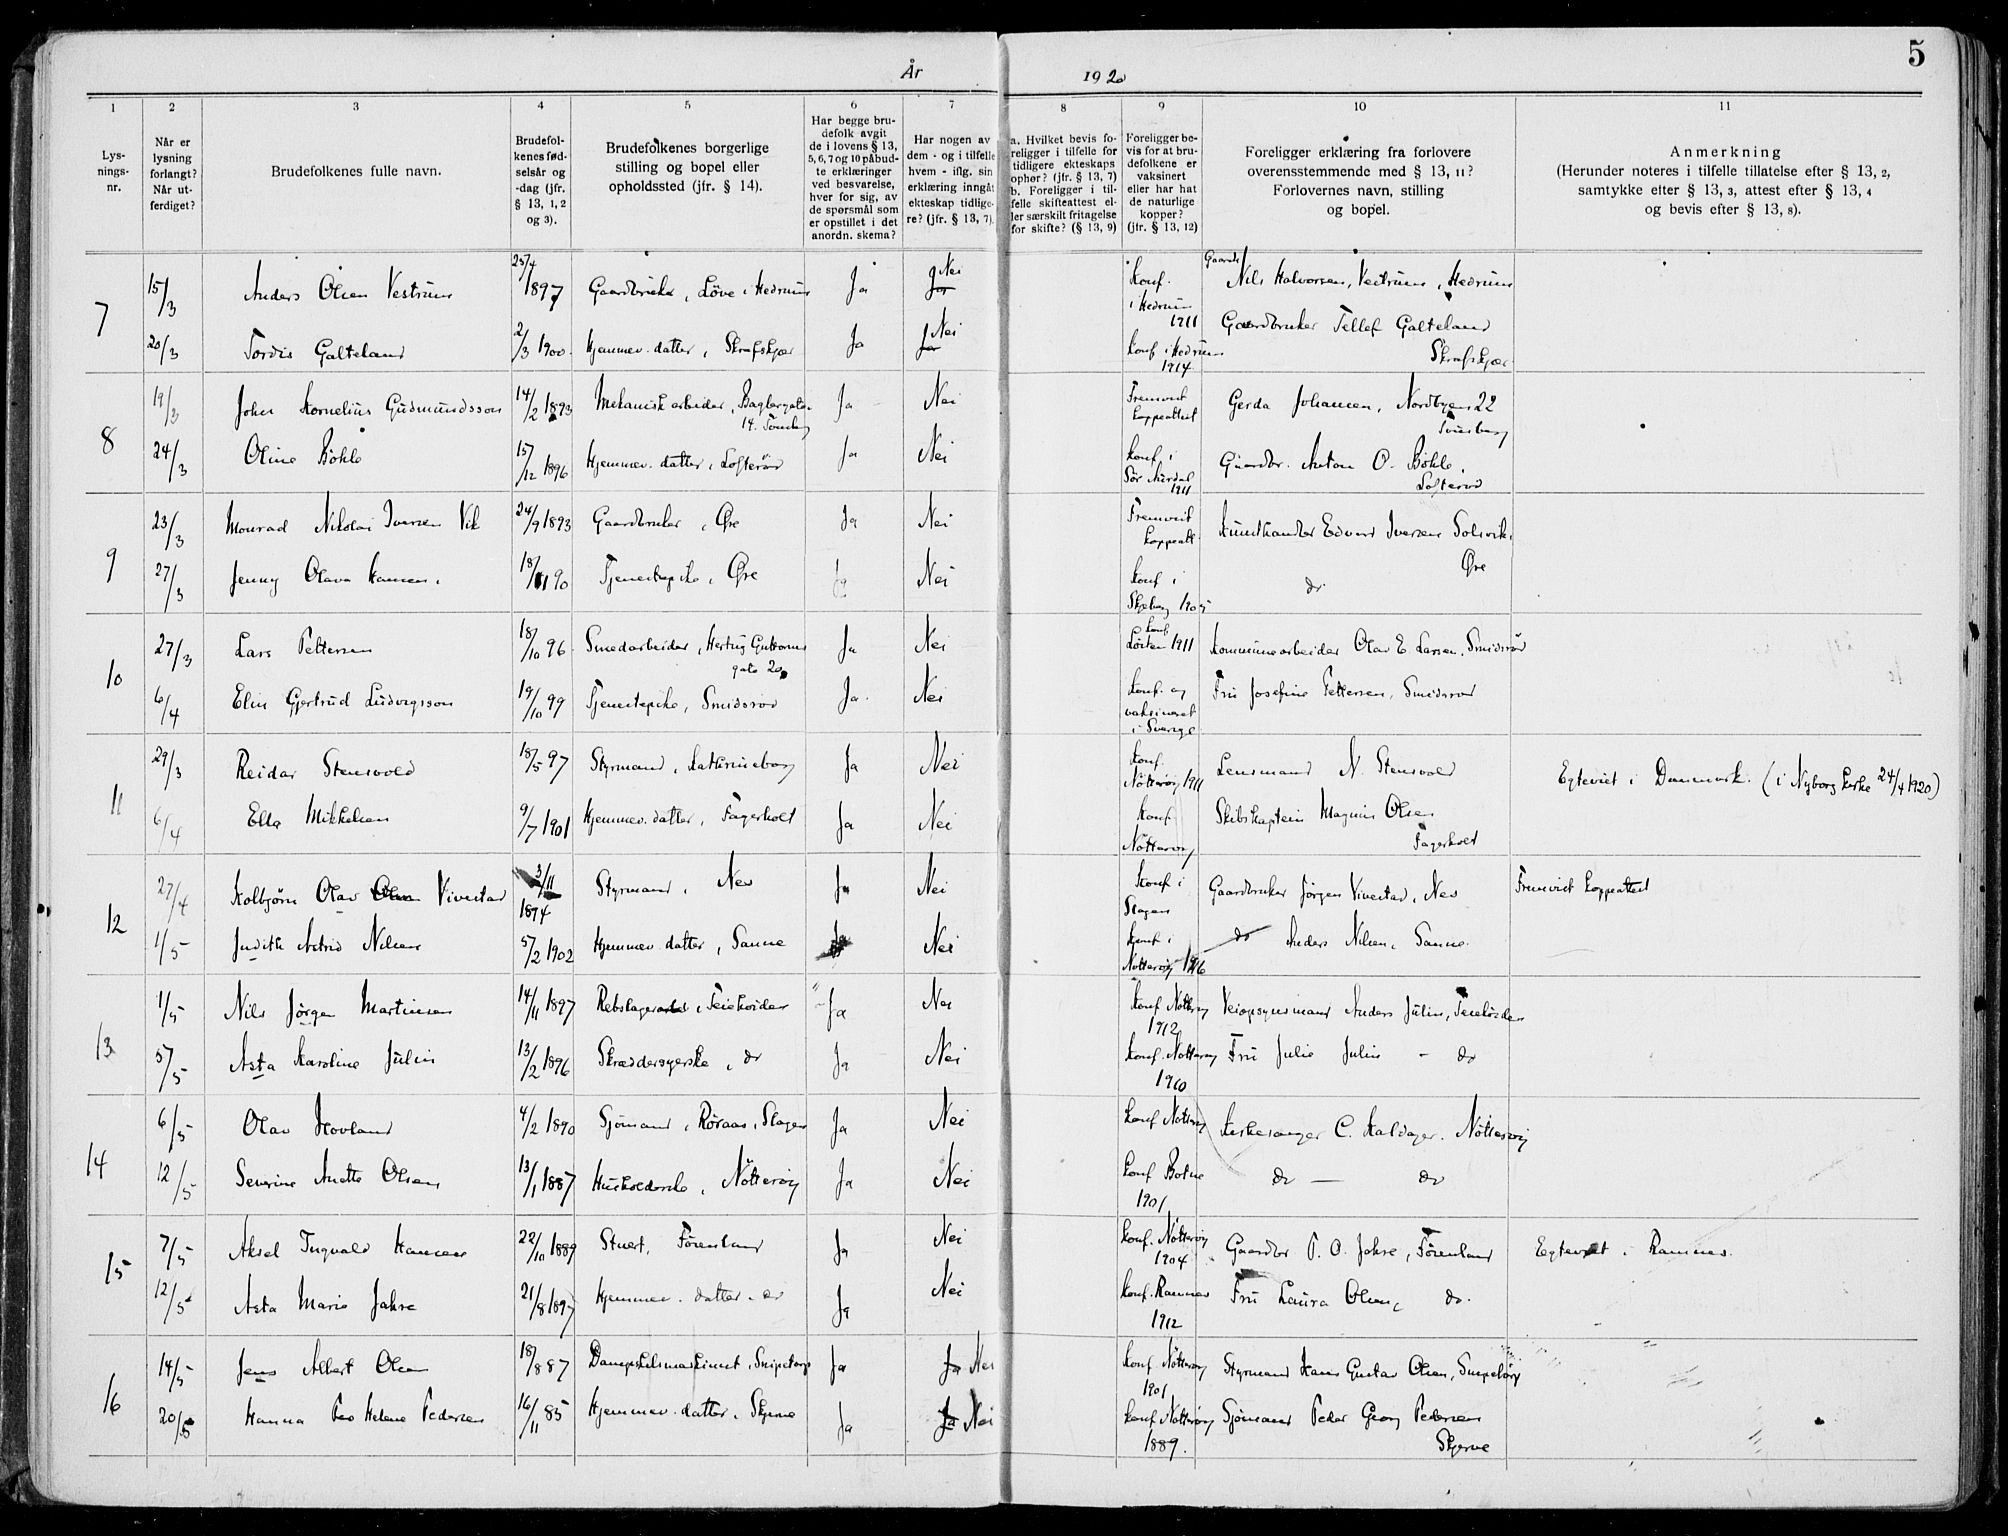 År 1920
5
1 2 3 4 5 6 7 8 9 10 11
Lys-
nings-
nr.
Når er
lysning
forlangt?
Når ut-
ferdiget?
Brudefolkenes fulle navn.
Brudefol-
kenes fød-
selsår og
-dag (jfr.
§ 13, 1, 2
og 3).
Brudefolkenes borgerlige
stilling og bopel eller
opholdssted (jfr. § 14).
Har begge bru-
defolk avgit
de i lovens § 13,
5, 6, 7 og 10 påbud-
te erklæringer
ved besvarelse,
hver for sig, av
de spørsmål som
er opstillet i det
anordn. skema?
Har nogen av
dem - og i tilfelle
hvem - iflg. sin
erklæring inngåt
ekteskap tidlige-
re? (jfr. § 13, 7).
a. Hvilket bevis fo-
religger i tilfelle for
tidligere ekteskaps
ophør? (jfr. § 13, 7)
b. Foreligger i til-
felle skifteattest el-
ler særskilt fritagelse
for skifte? (§ 13, 9)
Foreligger be-
vis for at bru-
defolkene er
vaksinert
eller har hat
de naturlige
kopper?
(jfr. § 13, 12)
Foreligger erklæring fra forlovere
overensstemmende med § 13, 11?
Forlovernes navn, stilling
og bopel.
Anmerkning
(Herunder noteres i tilfelle tillatelse efter § 13, 2,
samtykke efter § 13, 3, attest efter § 13, 4
og bevis efter § 13, 8).
7
15/3 Anders Olsen Vestrum 1897 Gaardbruker, Löve i Hedrum Ja Nei Konf. i Hedrum 1911 Gaardb Nils Halvorsen, Vestrum, Hedrum
20/3 Tordis Galteland 2/3 1900 Hjemmev. datter, Skrafskjær Ja Nei Konf i Hedrum 1914 Gaardbruker Tellef Galteland Skrafskjær
8
19/3 John Kornelius Gudmundsson 14/2 1893 Mekanisk arbeider, Baglergaten 14. Tönsberg Ja Nei Fremvist koppeattest Gerda Johansen, Nordbyen 22 Tönsberg
24/3 Oline Böhle 15/12 1896 Hjemmev. datter, Lofteröd Ja Nei Konf. i Sör Aurdal 1911 Gaardbr. Anton O. Böhle, Lofteröd
9
23/3 Monrad Nikolai Iversen Vik 24/9 1893 Gaardbruker, Øre Ja Nei Fremvist koppeatt. Kunsthandler Edvard Iversen Solvik, Øre
27/3 Jenny Olava Hansen. 18/11 90 Tjenestepike, Øre Ja Nei Konf i Skjeberg 1905 do
10
27/3 Lars Pettersen 18/10 96 Smedarbeider, Hertug Guttorms gate 20 Ja Nei Konf Löiten 1911 Kommunearbeider Olav E. Larsen, Smidsröd
6/4 Elin Gjertrud Ludvigsson 19/10 99 Tjenestepike, Smidsröd Ja Nei Konf. og vaksineret i Sverige Fru Josefine Pettersen, Smidsröd
11
29/3 Reidar Stensvold 18/5 97 Styrmand, Kathrineborg Ja Nei Konf. Nötterøy 1911 Lensmand N. Stensvold Egteviet i Danmark. (i Nyborg kirke 24/4 1920)
6/4 Ella Mikkelsen 9/7 1901 Hjemmev. datter, Fagerholt Ja Nei Konf. Nötterøy Skibskaptein Magnus Olsen Fagerholt
12
27/4 Kolbjörn Olav Olsen Vivestad 3/11 1894 Styrmand, Nes Ja Nei Konf i Slagen Gaardbruker Jørgen Vivestad, Nes Fremvist koppeattest
1/5 Judith Astrid Nilsen 5/2 1902 Hjemmev. datter, Sanne Ja Nei Konf i Nötterøy 1916 do Anders Nilsen, Sanne.
13
1/5 Nils Jørgen Martinsen 14/11 1897 Rebslager, Teiehöiden Ja Nei Konf Nötterøy 1912 Veiopsynsmand Anders Julin, Teiehöiden
5/5 Asta Karoline Julin 13/2 1896 Skræddersyerske, do Ja Nei Konf. Nötterøy 1910 Fru Julie Julin - do
14
6/5 Olav Hovland 4/2 1890 Sjömand, Röraas, Slagen Ja Nei Konf Nötterøy Kirkesanger C. Kaldager. Nötterøy
12/5 Severine Anette Olsen 13/1 1887 Husholderske, Nötterøy Ja Nei Konf Botne 1901 do — do
15
7/5 Aksel Ingvald Hansen 22/10 1889 Stuert, Förenland Ja Nei Konf. Nötterøy 1904 Gaardbr P. O. Jahre, Förenland Egteviet i Ramnes.
12/5 Asta Marie Jahre 21/8 1897 Hjemmev. datter. do Ja Nei Konf. Ramnes 1912 Fru Laura Olsen, do.
16
14/5 Jens Albert Olsen 18/8 87 Dampskibsmaskinist, Snipetorp Ja Ja Nei Konf. Nötterøy 1901 Styrmand Hans Gustav Olsen, Snipetorp
20/5 Hanna Helene Pedersen 16/11 85 Hjemmev. datter, Skjerve Ja Ja Nei Konf Nötterøy 1889. Sjömand Peder Georg Pedersen Skjerve